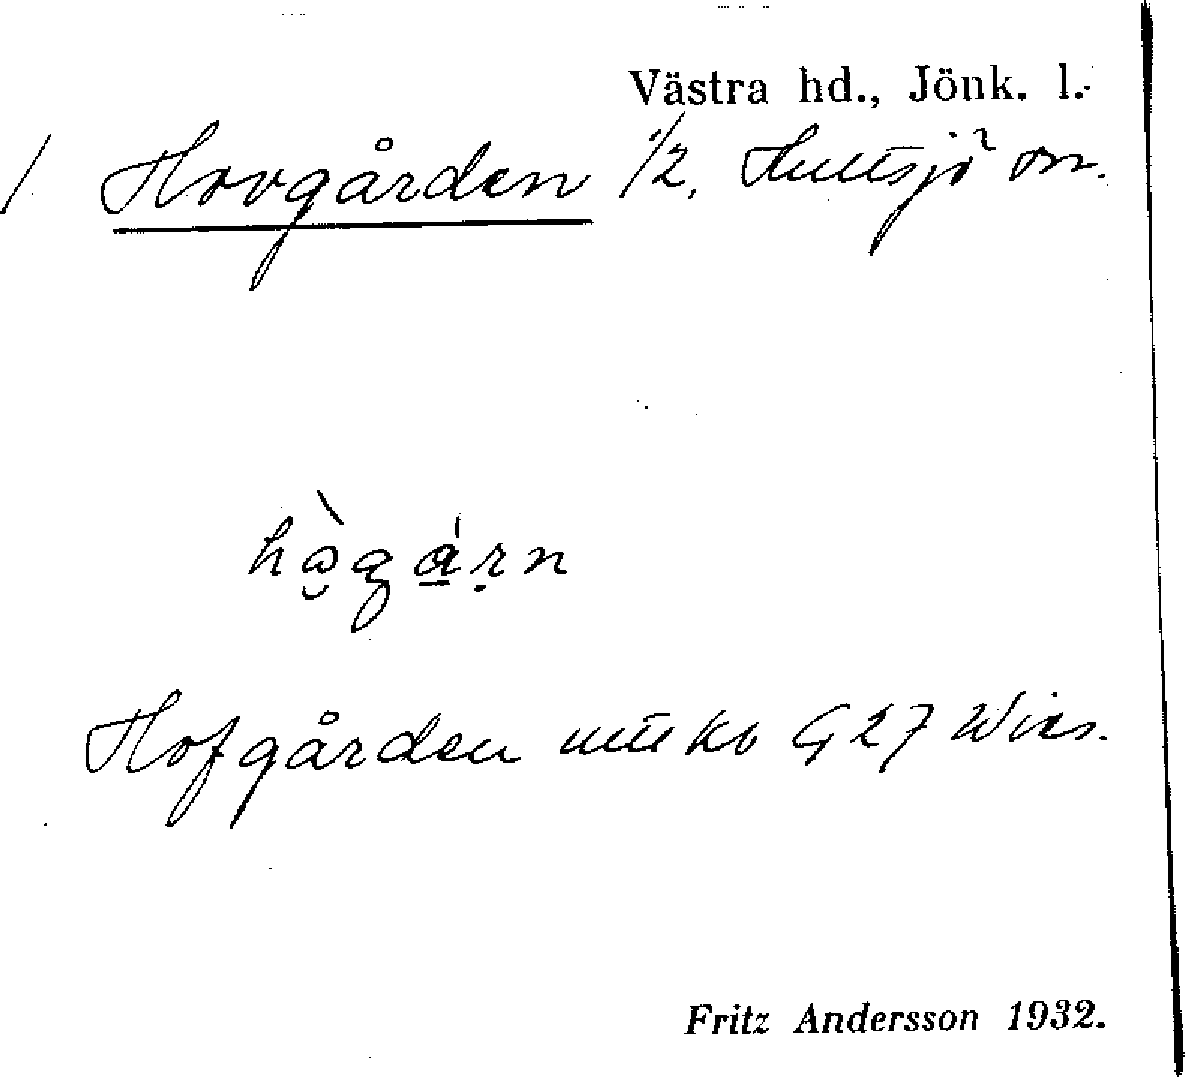 Västra hd., Jönk. l.
/ Hovgården 1/2, Hultsjö sn.
hògárn
Hofgården
Fritz Andersson 1932.